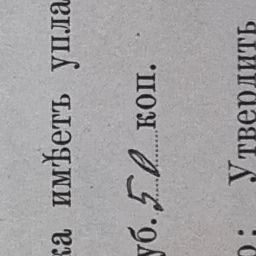 ка имѣетъ упла
уб. 50 коп.
о: Утвердить